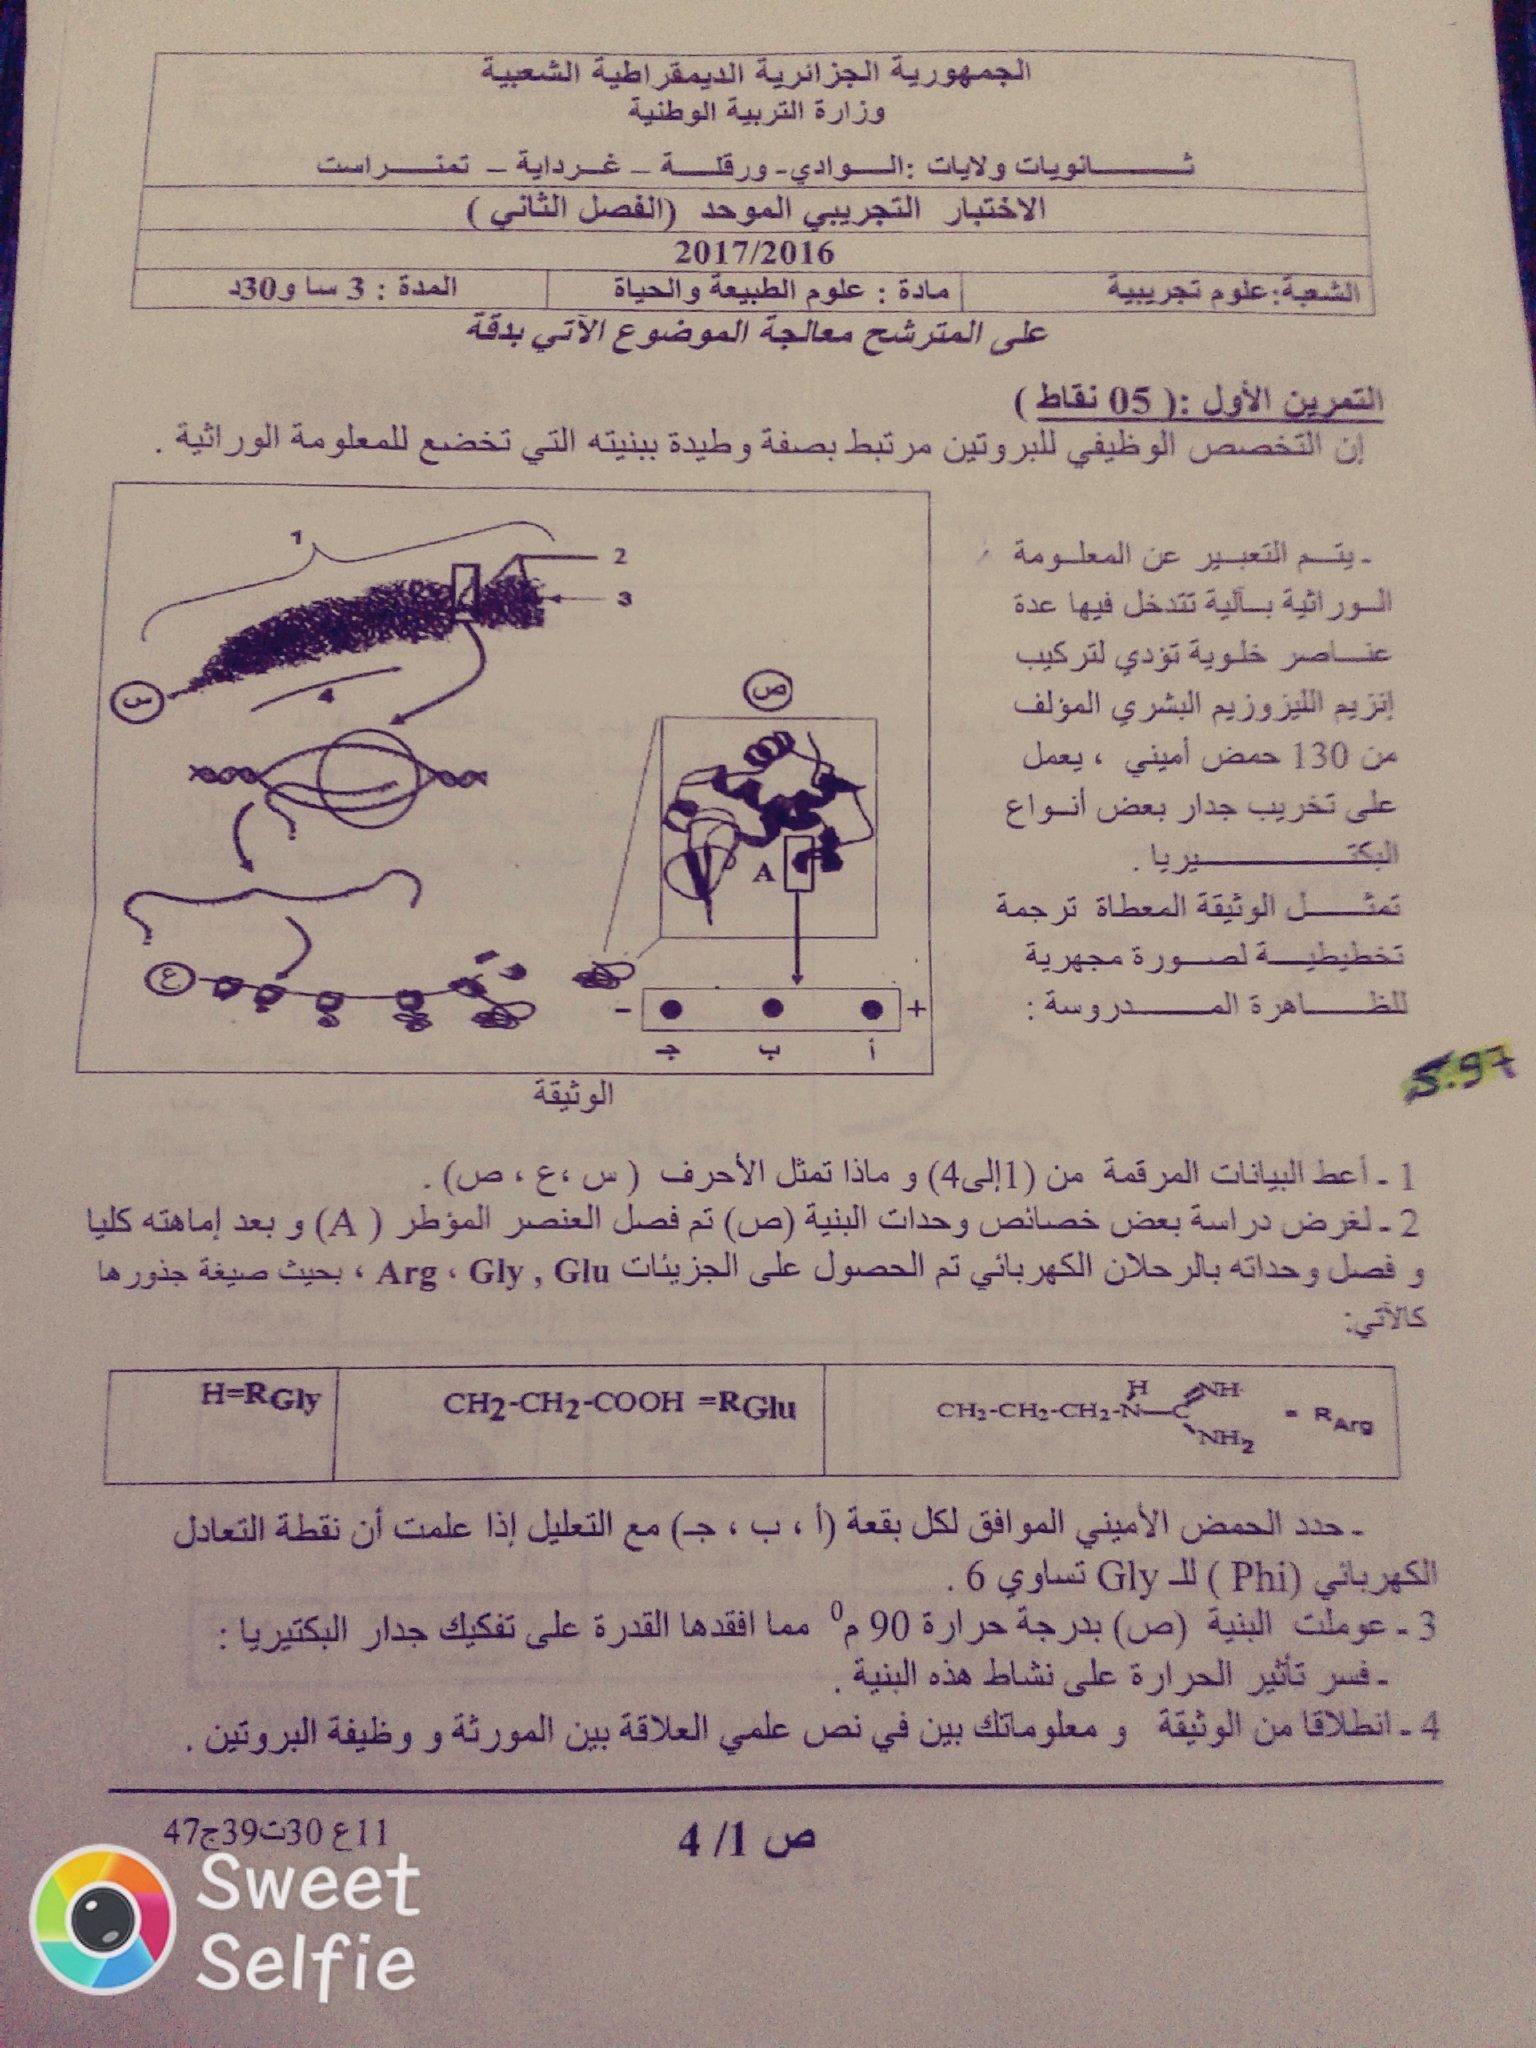 الجمهورية الجزائرية الديمقراطية الشعبية
وزارة التربية الوطنية
ثـــــــانويات ولايات :الـــوادي- ورقلــة – غــرداية – تمنــراست
الاختبار التجريبي الموحد (الفصل الثاني )
2017/2016
الشعبة:علوم تجريبية
مادة : علوم الطبيعة والحياة
المدة : 3 سا و30د
على المترشح معالجة الموضوع الآتي بدقة
التمرين الأول :( 05 نقاط )
إن التخصص الوظيفي للبروتين مرتبط بصفة وطيدة ببنيته التي تخضع للمعلومة الوراثية .
ـ يتـم التعبيـر عن المعلـومة
الـوراثية بـآلية تتدخل فيها عدة
عنـاصر خلـوية تؤدي لتركيب
إنزيم الليزوزيم البشري المؤلف
من 130 حمض أميني ، يعمل
على تخريب جدار بعض أنـواع
البكتـــــــــيريا .
تمثـــل الوثيقة المعطاة ترجمة
تخطيطيـــة لصـورة مجهرية
للظـــاهرة المـــدروسة :
1
2
3
س
4
ص
A
ع
-
+
جـ
ب
أ
الوثيقة
5.97
1 ـ أعط البيانات المرقمة من (1إلى4) و ماذا تمثل الأحرف ( س ،ع ، ص) .
2 ـ لغرض دراسة بعض خصائص وحدات البنية (ص) تم فصل العنصر المؤطر ( A) و بعد إماهته كليا
و فصل وحداته بالرحلان الكهربائي تم الحصول على الجزيئات Arg ، Gly , Glu ، بحيث صيغة جذورها
كالآتي:
H=RGly
CH2-CH2-COOH =RGlu
CH2-CH2-CH2-N—C
H
NH
NH2
= RArg
ـ حدد الحمض الأميني الموافق لكل بقعة (أ ، ب ، جـ) مع التعليل إذا علمت أن نقطة التعادل
الكهربائي (Phi ) للـ Gly تساوي 6 .
3 ـ عوملت البنية (ص) بدرجة حرارة 90 م0 مما افقدها القدرة على تفكيك جدار البكتيريا :
ـ فسر تأثير الحرارة على نشاط هذه البنية .
4 ـ انطلاقا من الوثيقة و معلوماتك بين في نص علمي العلاقة بين المورثة و وظيفة البروتين .
ص 1/ 4
11ع 30ت39ج47
Sweet
Selfie